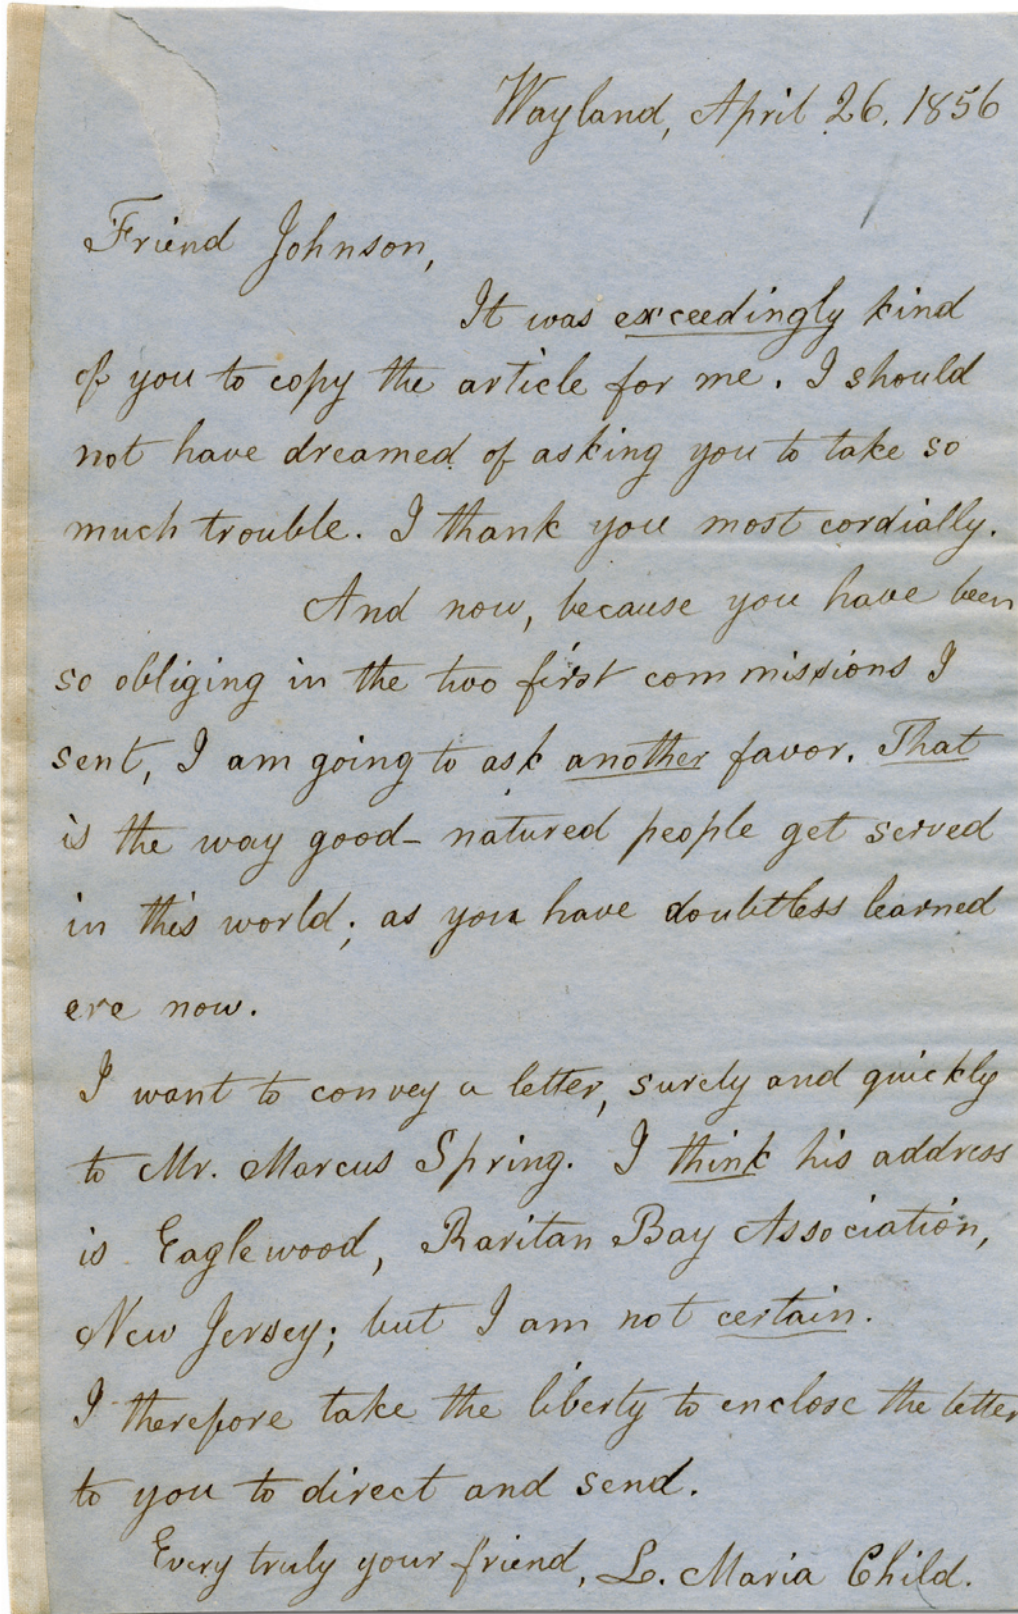 Wayland, April 26, 1856
Friend Johnson,
It was exceedingly kind
of you to copy the article for me. I should
not have dreamed of asking you to take so
much trouble. I thank you most cordially.
And now, because you have been
so obliging in the two first commissions I
sent, I am going to ask another favor. That
is the way good-natured people get served
in this world; as you have doubtless learned
ere now.
I want to convey a letter, surely and quickly
to Mr. Marcus Spring. I think his address
is Eaglewood, Raritan Bay Association,
New Jersey; but I am not certain.
I therefore take the liberty to enclose the letter
to you to direct and send.
Every truly your friend, L. Maria Child.